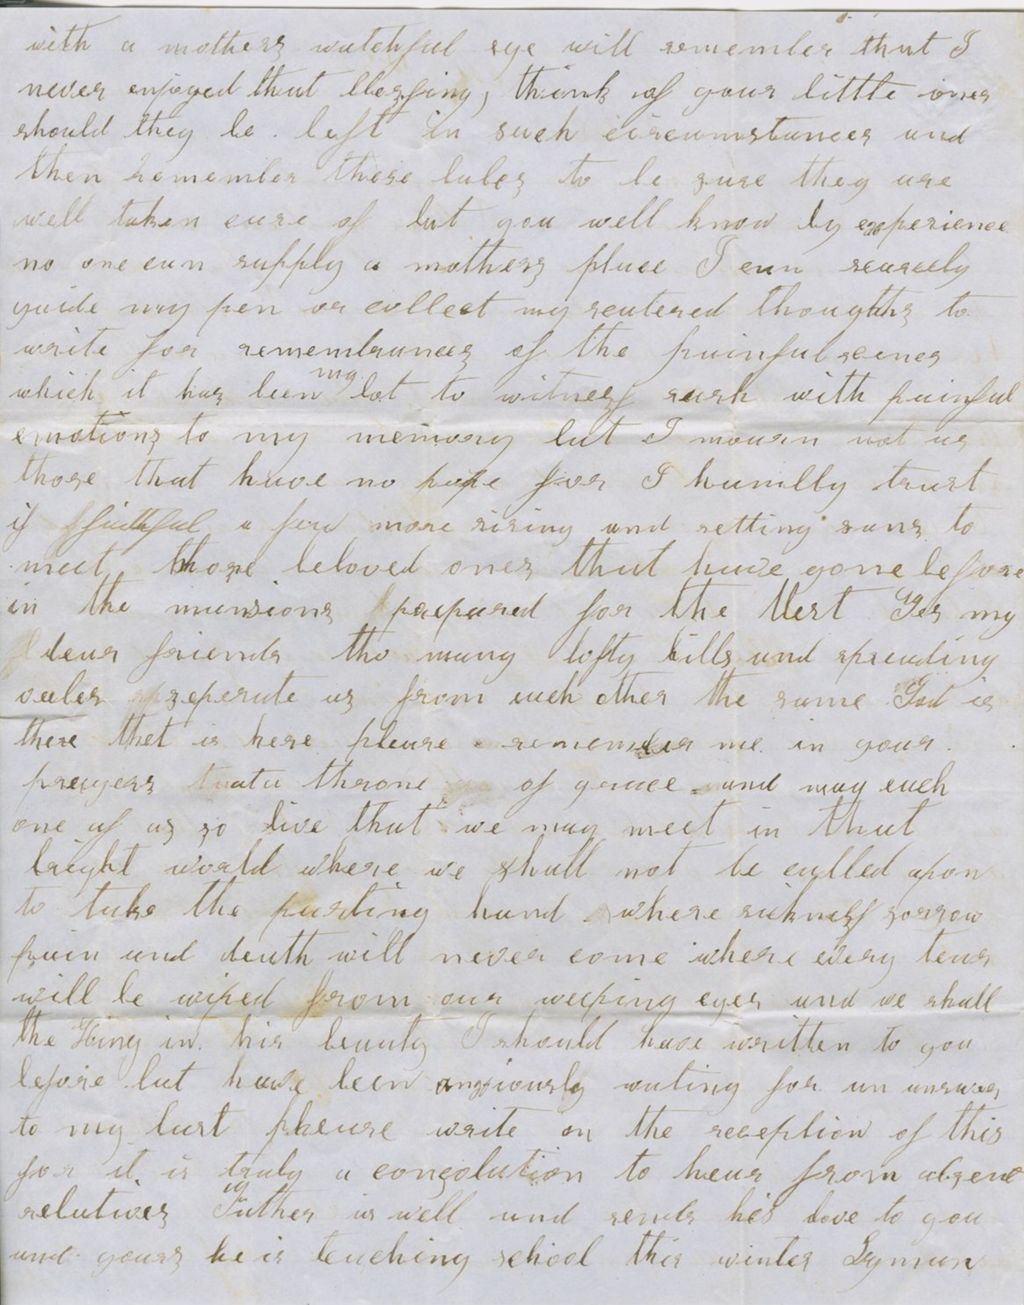 with a mothers watchful eye will remember that I
never enjoyed that blessing, think of your little ones
should they be left in such circumstances and
then remember these babes to be sure they are
well taken care of but you well know by experience
no one can supply a mothers place I can scarcely
guide my pen or collect my scatered thoughts to
write for remembrances of the painful scenes
which it has been my lot to witness rush with painful
emotions to my memory but I mourn not as
those that have no hope for I humbly trust
if faithful a few more rising and setting suns to
meet those beloved ones that have gone before
in the mansions prepared for the blest Yes my
dear friends tho many lofty hills and spreading
vales seperate us from each other the same God is
there that is here please remember me in your
prayers at a throne of grace and may each
one of us so live that we may meet in that
bright world where we shall not be called upon
to take the parting hand where sickness sorrow
pain and death will never come where every tear
will be wiped from our weeping eyes and we shall
the King in his beauty I should have written to you
before but have been anxiously waiting for an answer
to my last please write on the reception of this
for it is truly a consolation to hear from absent
relatives Father is well and sends his love to you
and yours he is teaching school this winter Lyman